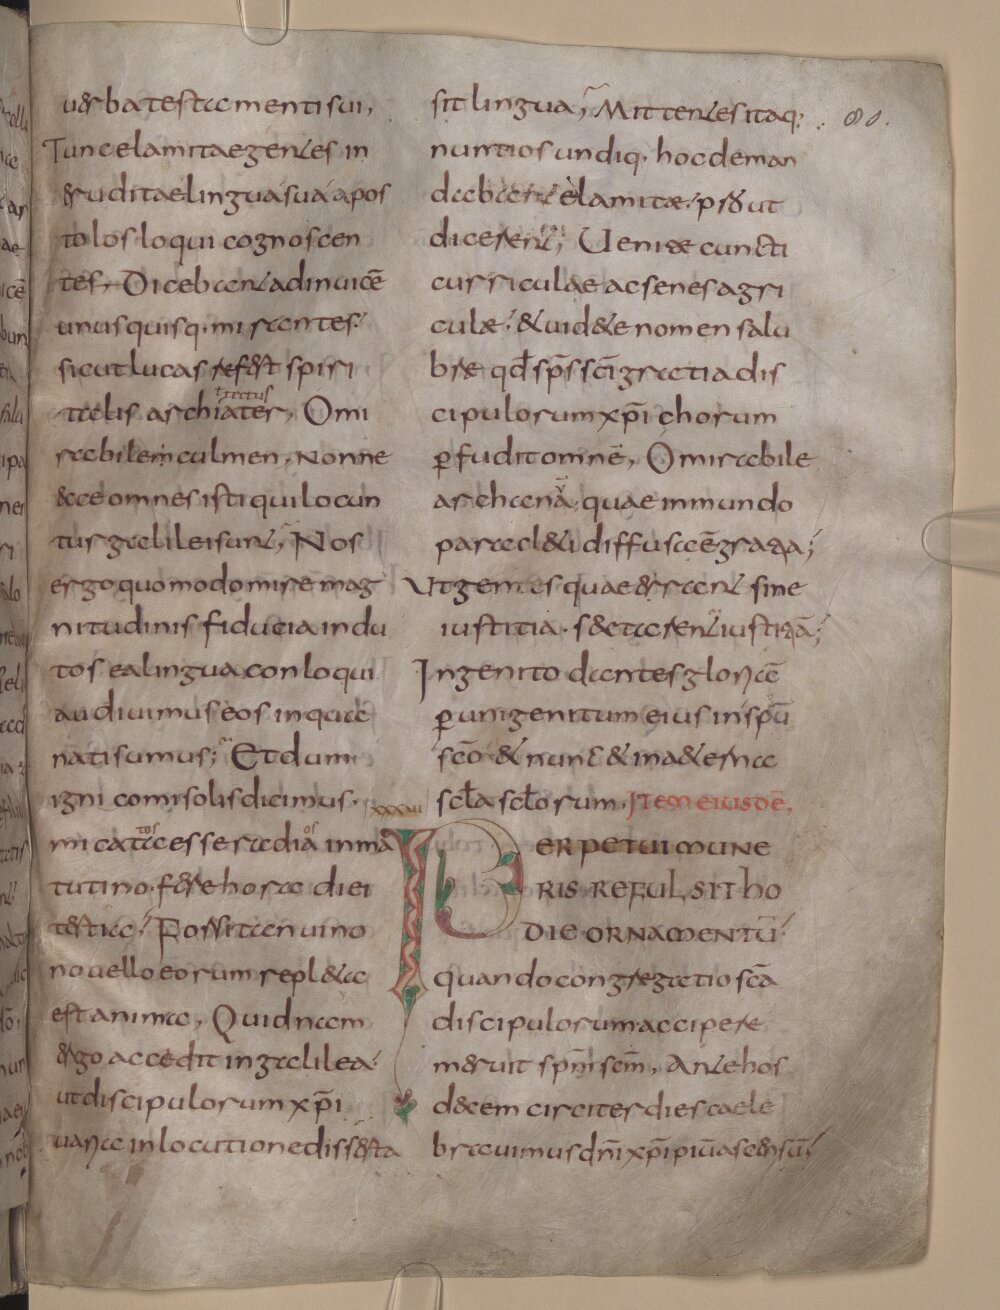 uerba testamenti sui,
Tunc elamitae gentes in
eruditae linguá suá apos
tolos loqui cognoscen
tes, Dicebant ad inuicē
unusquisq. mirantes.
sicut lucas refert spiri
talis archiater, O mi
tratus
rabilem culmen, Nonne
ecce omnes isti qui locun
tur galilei sunt, Nos
ergo quomodo mirē mag
nitudinis fiducia indu
tos ea lingua conloqui
audiuimus eos in qua
nati sumus; Et dum
igni comis solis dicimus.
mi catas esse radiā in ma
tutino. fere hora diei
tertia. Possit an uino
nouello eorum repl&a
est anima, Quid nam
ergo accedit in galilea.
ut discipulorum xp̄i
uaria in locutione disserta
sit lingua, Mittentes itaq.
nuntios undiq. hoc deman
dabant elamitæ. prout
dicerent, Uenite cuncti
curriculae ac senes agri
culæ. & uid&e nomen salu
bre qđ sp̄s sc̄i gratia dis
cipulorum xp̄i chorum
ꝑfudit omnē, O mirabile
archanā. quae in mundo
paracl&i diffusa ē graтia;
Ut gentes quae erant sine
iustitia. sectarent iustitiā;
Ingenito dantes gloriā
ꝑ unigenitum eius in spū
sc̄o & nunc & in a&erna
sc̄la sc̄lorum. Item eiusdē.
xxxvii
PERPETUI MUNE
RIS REFULSIT HO
DIE ORNAMENTŪ
quando congregatio sc̄a
discipulorum accipere
meruit sp̄m sc̄m, Ante hos
decem circiter dies caele
brauimus dn̄i xp̄i piū ascensū;
80.